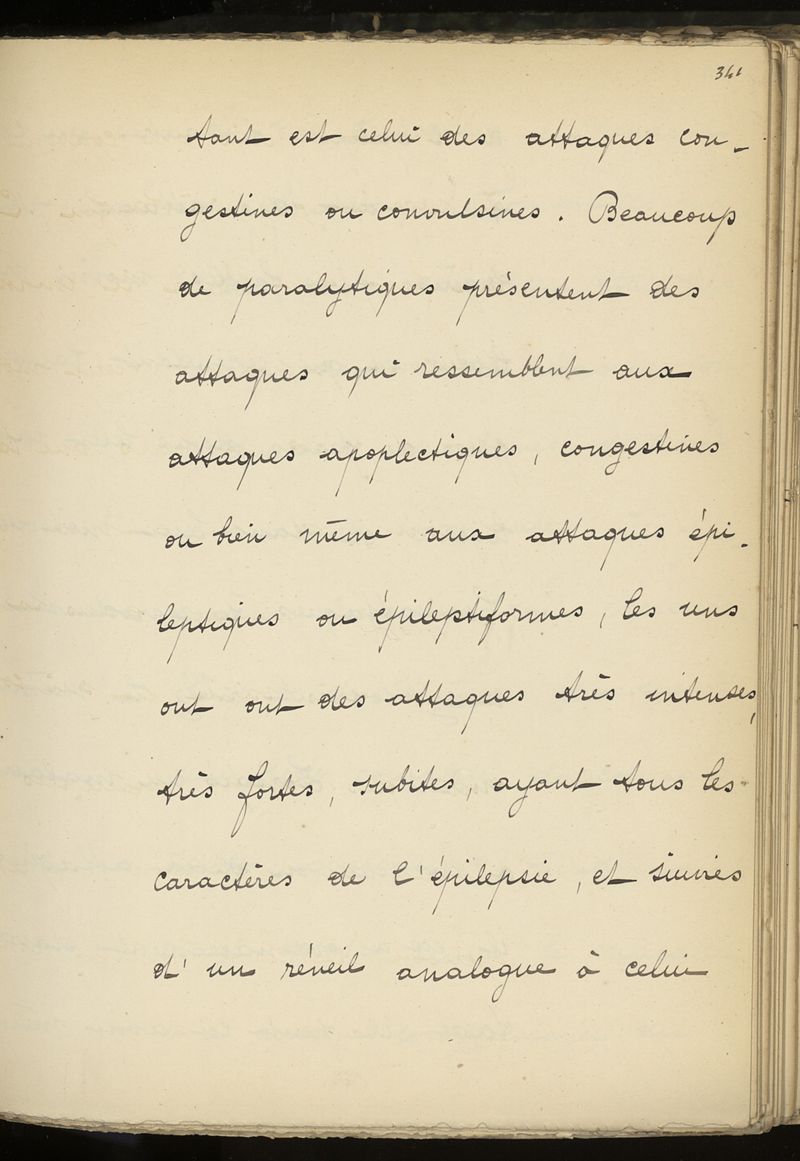 341
tant est celui des attaques con-
gestives ou convulsives. Beaucoup
de paralytiques présentent des
attaques qui ressemblent aux
attaques apoplectiques, congestives
ou bien même aux attaques épi-
leptiques ou épileptiformes, les uns
ont ont des attaques très intenses,
très fortes, subites, ayant tous les
caractères de l'épilepsie, et suivies
d'un réveil analogue à celui